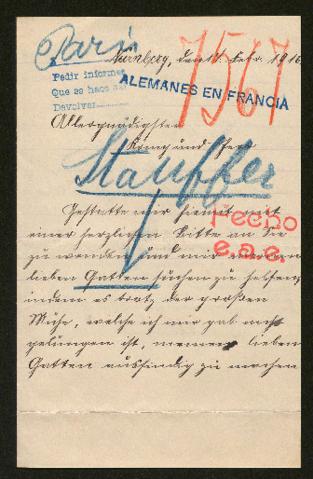 Paris
Nürnberg, den 17. Febr. 1916.
7567
Pedir informes
Que se haga
Devolver
ALEMANES EN FRANCIA
Allergnädigster
König und Herr
Stauffer
Gestatte mir hiemit mit
einer herzlichen Bitte an Sie
zu wenden und mir meinen
lieben Gatten suchen zu helfen,
indem es trotz der großen
Mühe, welche ich mir gab nicht
gelungen ist, meinen lieben
Gatten ausfindig zu machen
Hecho
e.a.e.